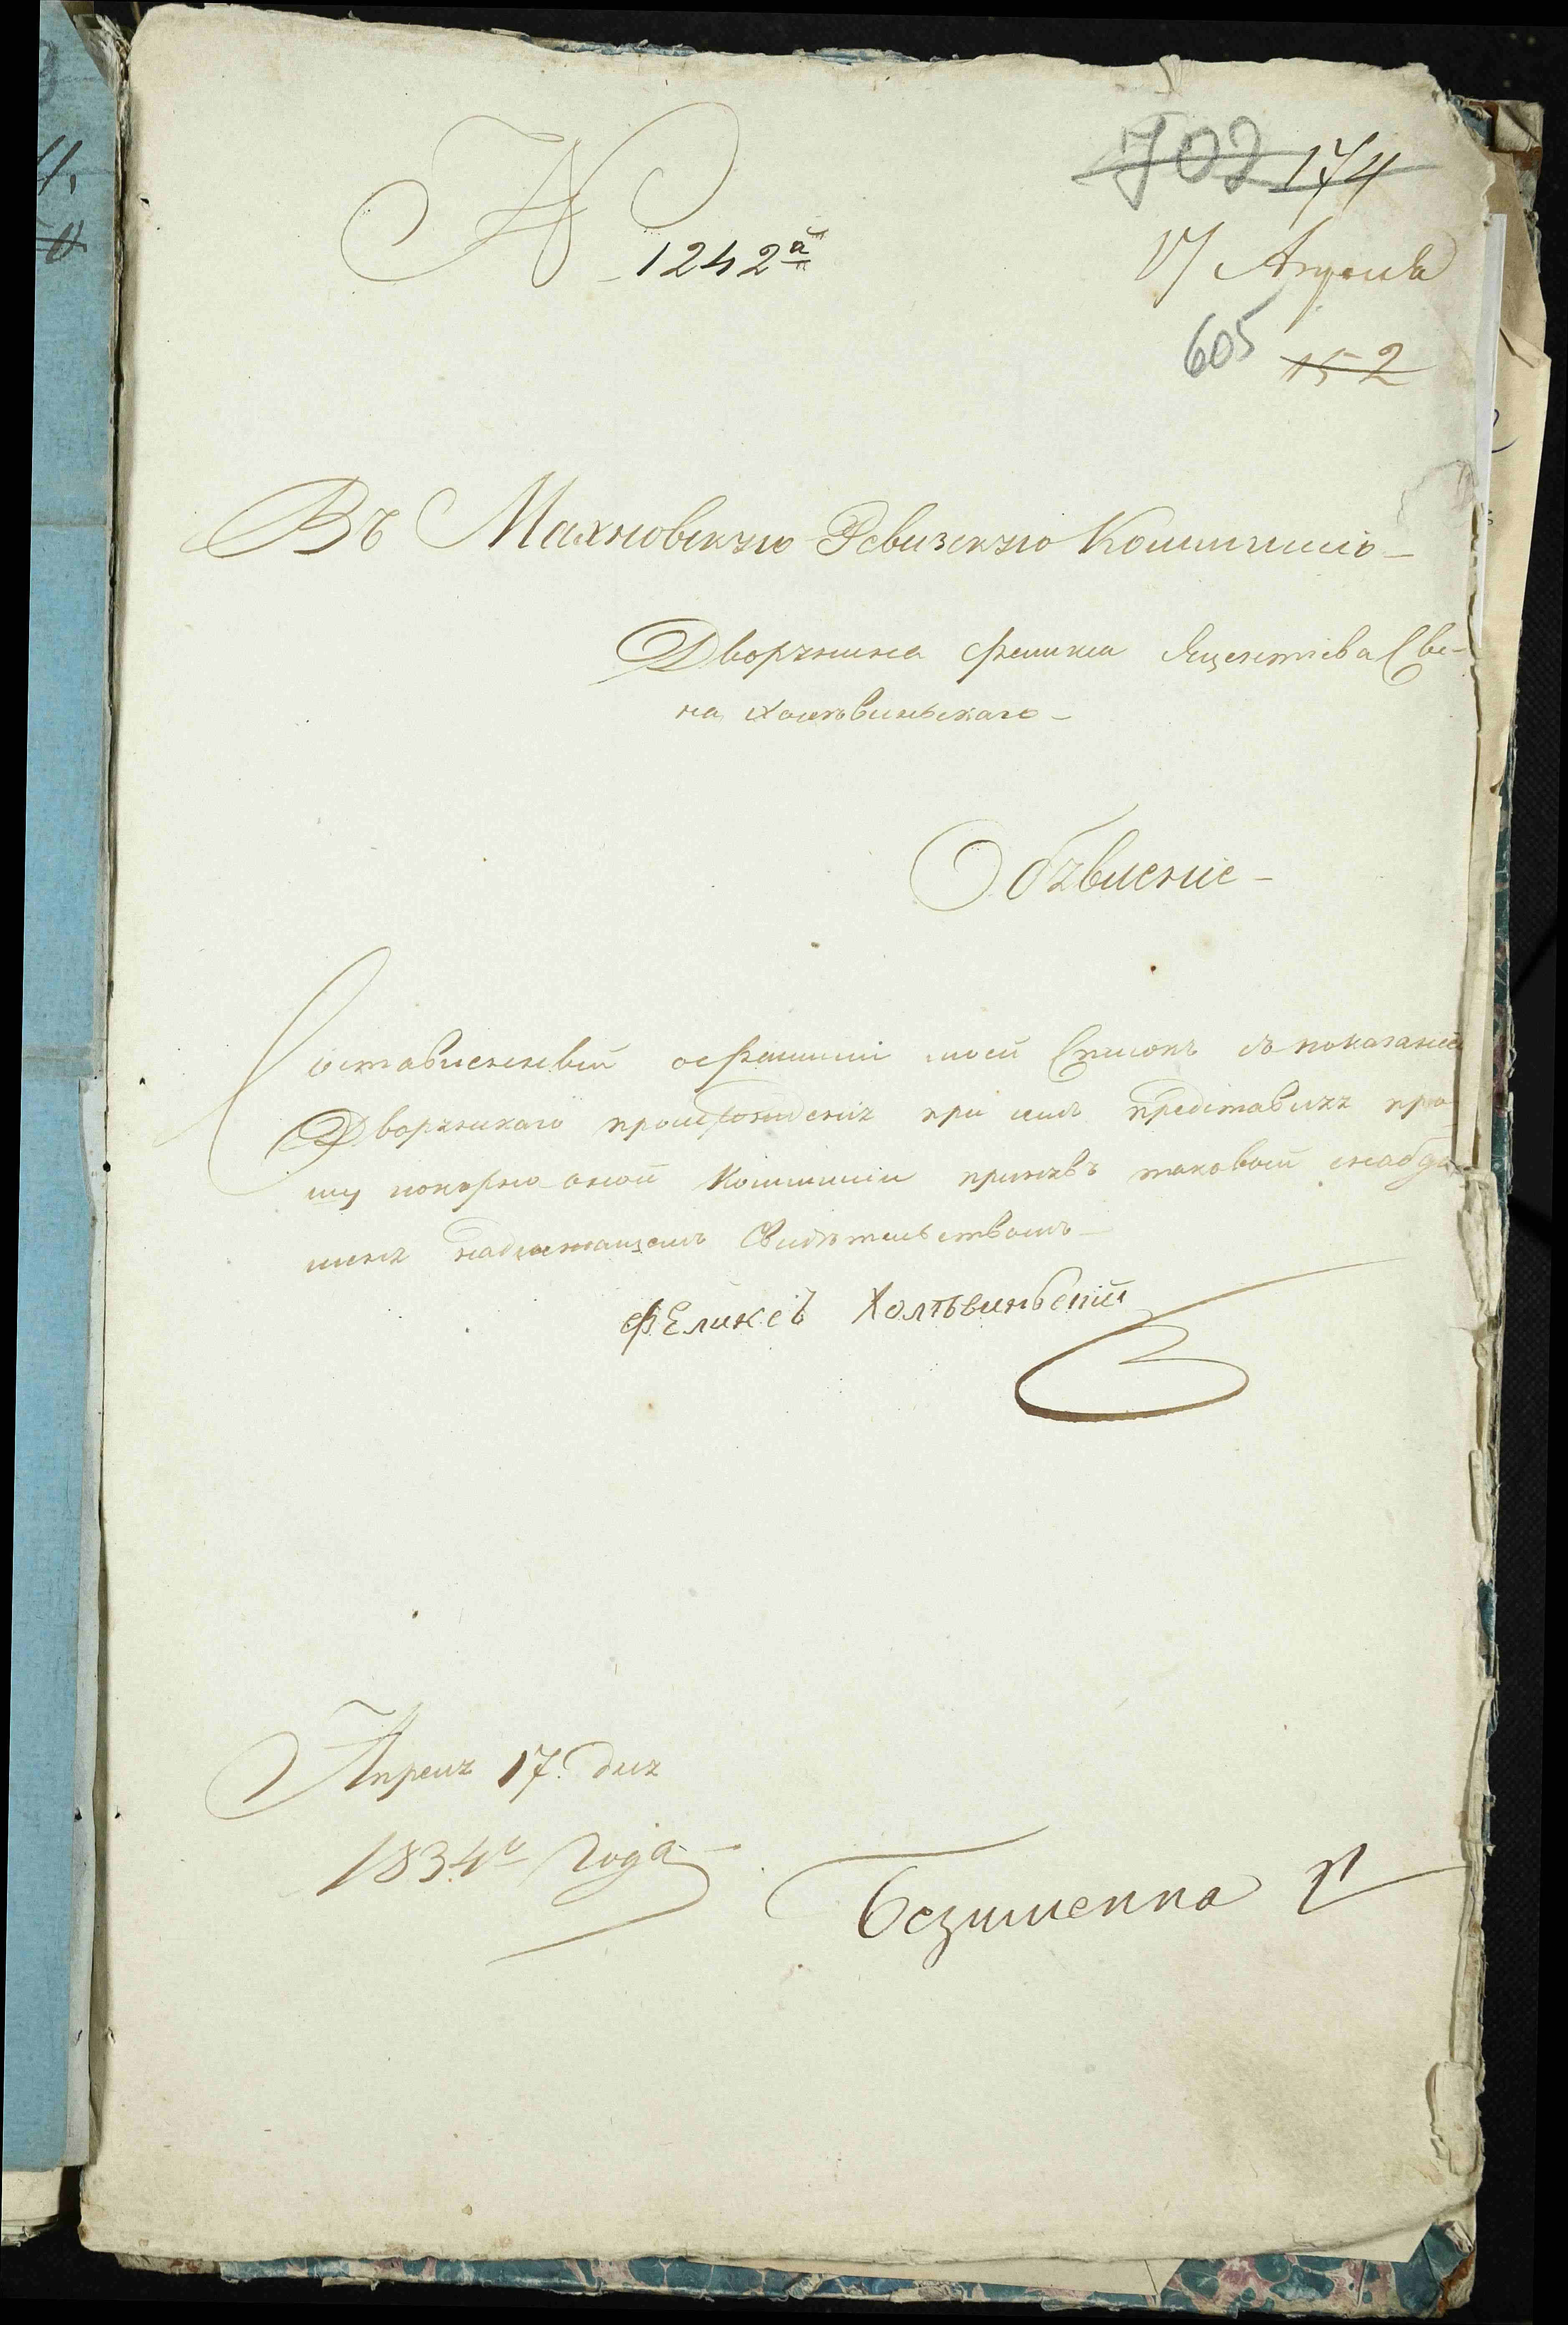 702 174
N 1242й
17 Апреля
605 152
Въ Махновскую Ревизскую Коммиссію
Дворянина Феликса Яцентіева Сы-
на Холтвиньскаго
Обявленіе
Составленный о фамиліи моей Списокъ съ показаніем
Дворянскаго происхожденія при семъ представляя про-
шу покорно оной Коммиссіи принявъ таковый снабдить
меня надлежащемъ Свидѣтельствомъ
Феликсъ Холтвиньскій
Апреля 17 дня
1834го Года
Безименна